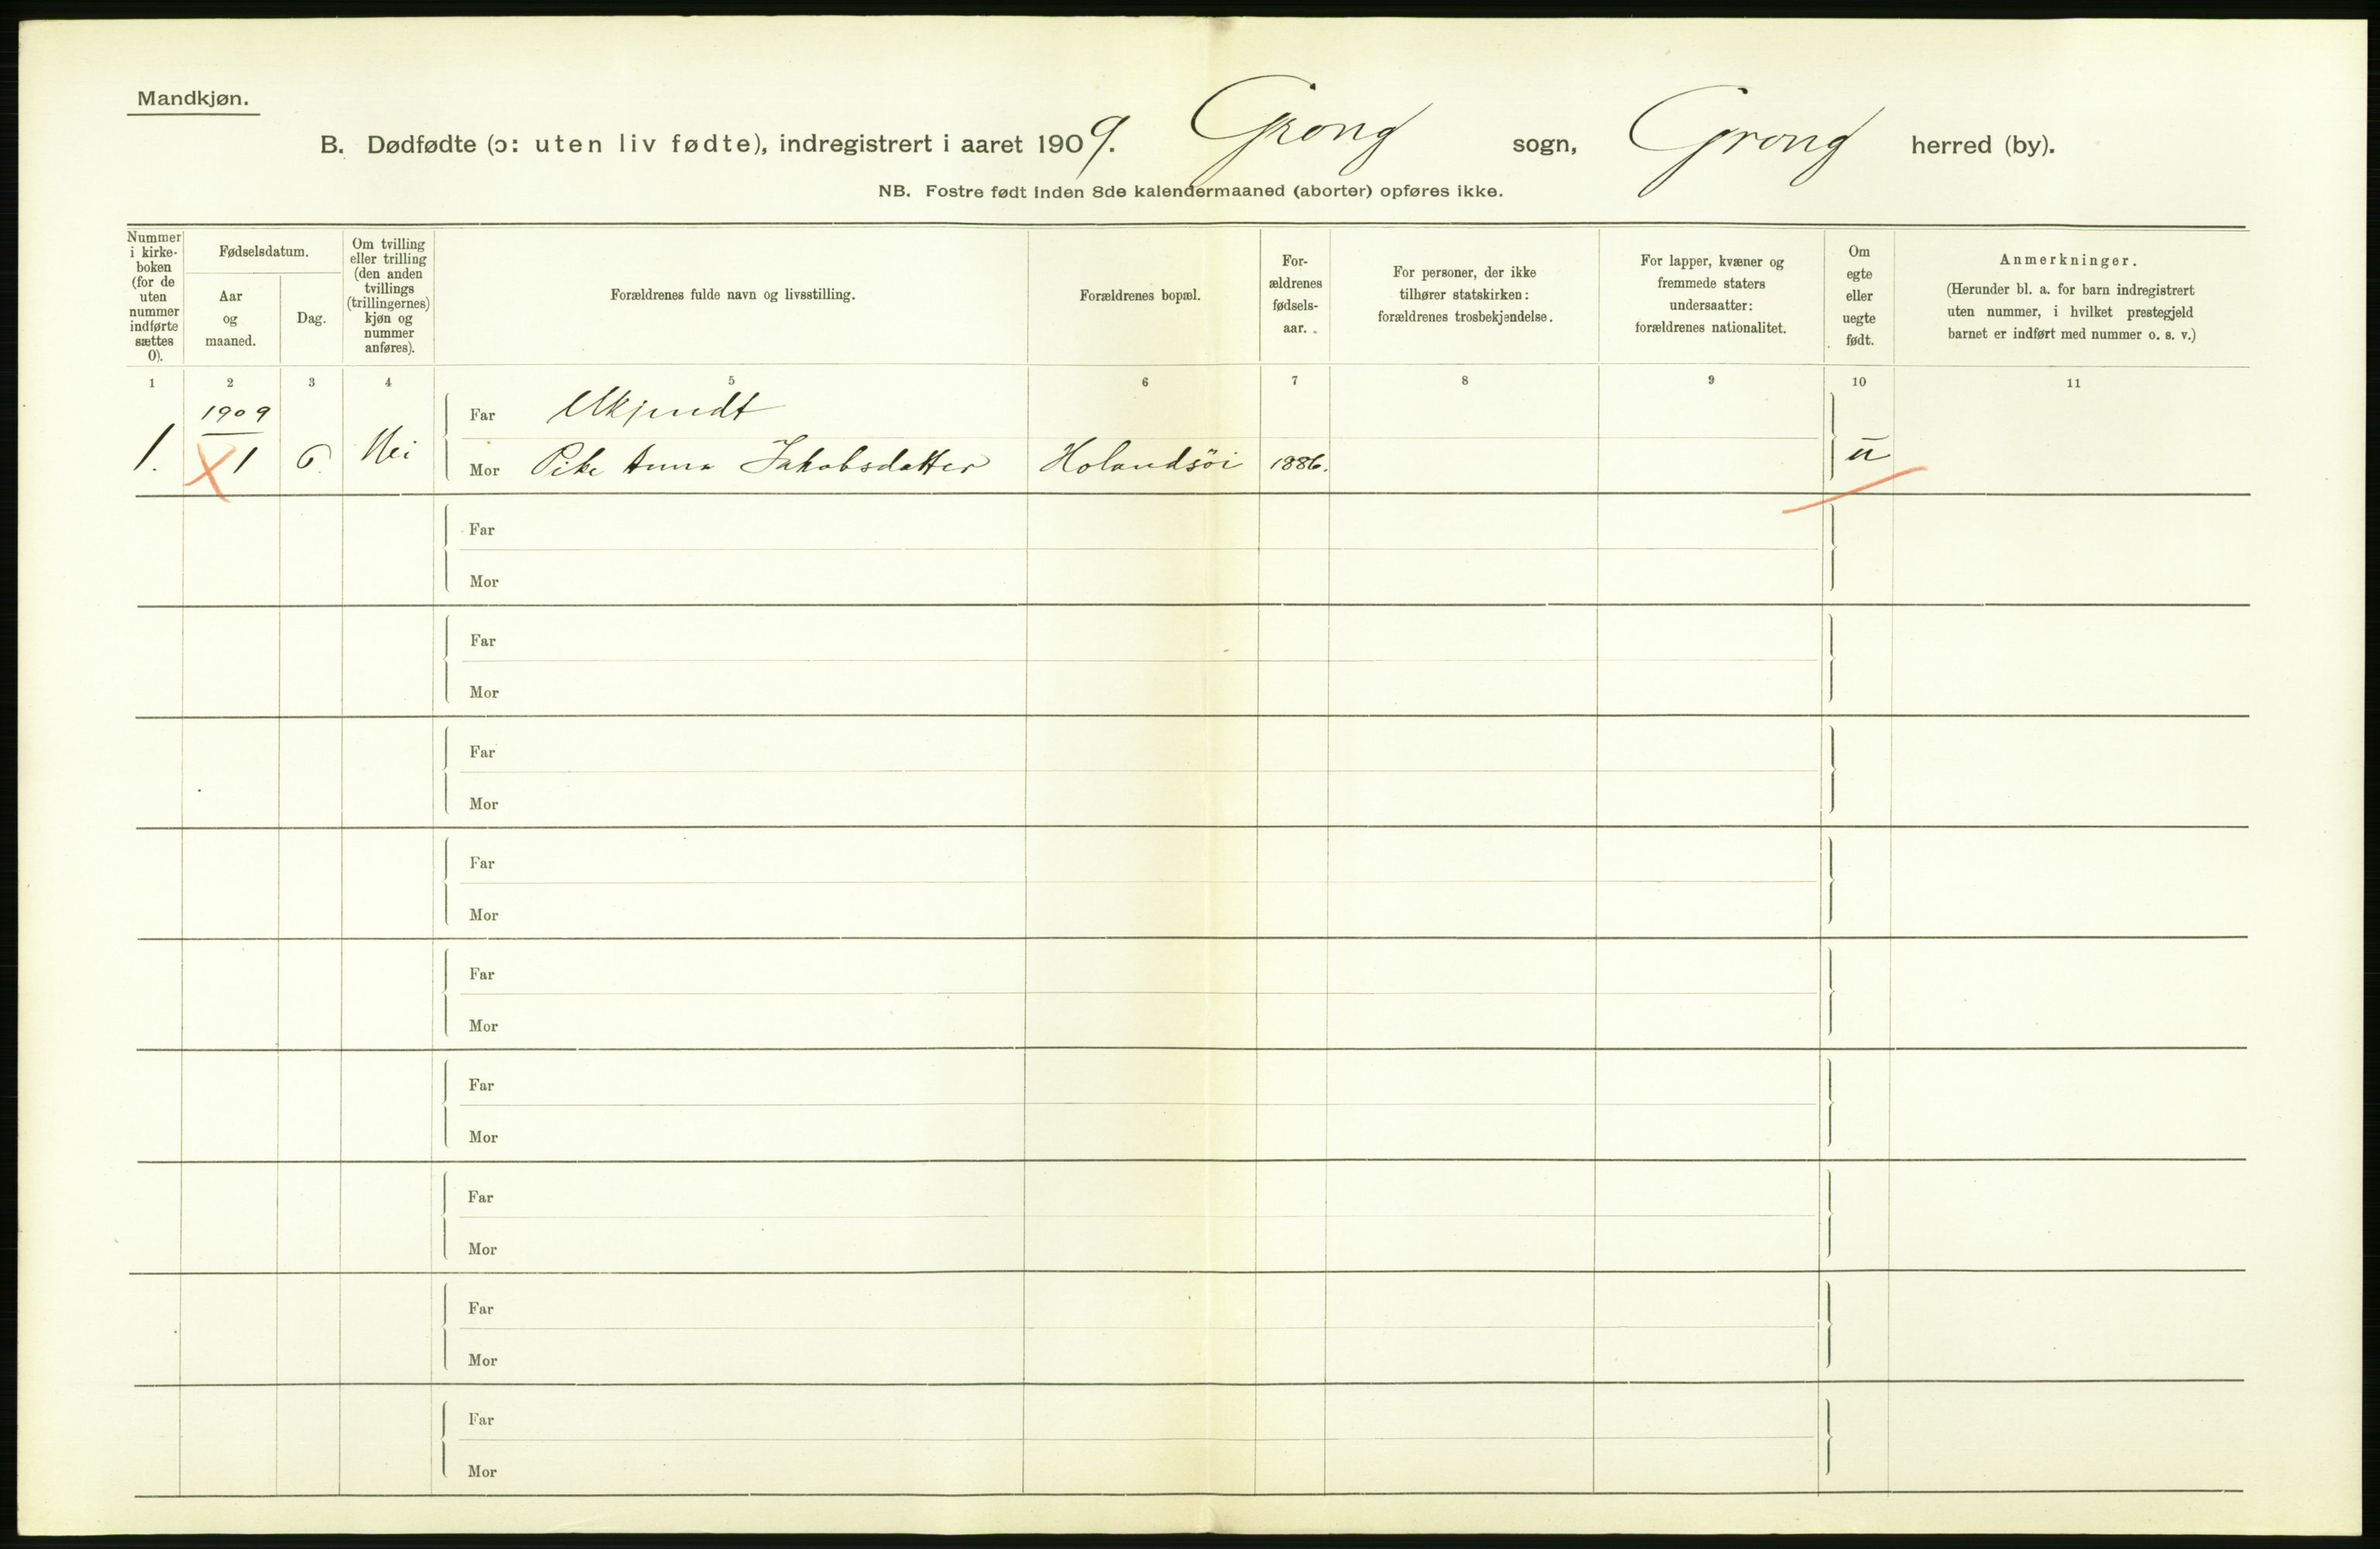 Mandkjøn.
B. Dødfødte (ɔ: uten liv fødte), indregistrert i aaret 1909. Grong sogn, Grong herred (by).
NB. Fostre født inden 8de kalendermaaned (aborter) opføres ikke.
Nummer i kirke-boken (for de uten nummer indførte sættes 0).
Fødselsdatum.
Aar og maaned.
Dag.
Om tvilling eller trilling (den anden tvillings (trillingernes) kjøn og nummer anføres).
Forældrenes fulde navn og livsstilling.
Forældrenes bopæl.
For-ældrenes fødsels-aar.
For personer, der ikke tilhører statskirken: forældrenes trosbekjendelse.
For lapper, kvæner og fremmede staters undersaatter: forældrenes nationalitet.
Om egte eller uegte født.
Anmerkninger.
(Herunder bl. a. for barn indregistrert uten nummer, i hvilket prestegjeld barnet er indført med nummer o. s. v.)
1 2 3 4 5 6 7 8 9 10 11
1909
Far Ukjendt
1. 1 6. Nei Mor Pike Anna Jakobsdatter Holandsöi 1886. u
Far
Mor
Far
Mor
Far
Mor
Far
Mor
Far
Mor
Far
Mor
Far
Mor
Far
Mor
Far
Mor